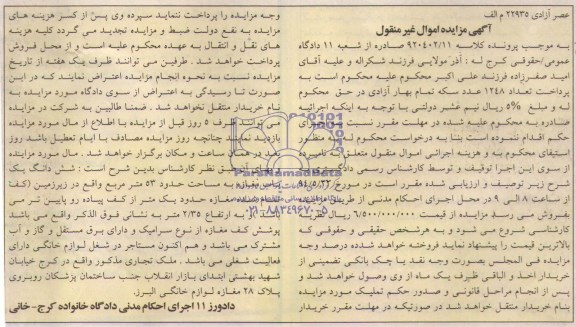 عصر آزادی ۲۲۹۳۵ م الف
آگهی مزایده اموال غیر منقول
به موجب پرونده کلاسه ۹۲۰۴۰۲/۱۱ صادره از شعبه ۱۱ دادگاه
عمومی/حقوقی کرج له : آذر مولایی فرزند شکراله و علیه آقای
امید صفرزاده فرزند علی اکبر محکوم علیه محکوم است به
پرداخت تعداد ۱۲۴۸ عدد سکه تمام بهار آزادی در حق محکوم
له و مبلغ ۵% ریال نیم عشر دولتی با توجه به اینکه اجرائیه
صادره به محکوم علیه شده در مهلت مقرر نسبت به اجرای
حکم اقدام ننموده است بنا به درخواست محکوم له به منظور
استیفای محکوم به و هزینه اجرائی اموال منقول متعلق به نامبرده
از سوی این اجرا توقیف و توسط کارشناس رسمی دادگستری به
شرح زیر توصیف و ارزیابی شده مقرر است در مورخ ۹۴/۵/۲۲
از ساعت ۸ الی ۹ در محل اجرای احکام مدنی از طریق مزایده
بفروش می رسد مزایده از قیمت ۶/۵۰۰/۰۰۰/۰۰۰ ریال نظریه
کارشناسی شروع می شود و به هرشخص حقیقی و حقوقی که
بالاترین قیمت را پیشنهاد نماید فروخته خواهد شد ده درصد وجه
مزایده فی المجلس بصورت وجه نقد یا چک بانکی تضمینی از
خریدار اخذ و الباقی ظرف یک ماه از وی وصول خواهد شد و
پس از انجام مراحل قانونی و صدور حکم تملیک مورد مزایده
بنام خریدار منتقل خواهد شد در صورتیکه در مهلت مقرر خریدار
وجه مزایده را پرداخت ننماید سپرده وی پس از کسر هزینه های
مزایده به نفع دولت ضبط و مزایده تجدید می گردد کلیه هزینه
های نقل و انتقال به عهده محکوم علیه است و از محل فروش
پرداخت خواهد شد . طرفین می توانند ظرف یک هفته از تاریخ
مزایده نسبت به نحوه انجام مزایده اعتراض نمایند که در این
صورت تا رسیدگی به اعتراض از سوی دادگاه مورد مزایده به
نام خریدار منتقل نخواهد شد . ضمنا طالبین به شرکت در مزایده
می توانند ظرف ۵ روز قبل از مزایده با اطلاع از مال مورد مزایده
بازدید نمایند چنانچه روز مزایده مصادف با ایام تعطیل باشد روز
بعد در همان ساعت و مکان برگزار خواهد شد . مال مورد مزایده
نظر کارشناس بدین شرح است : شش دانگ یک
به مساحت حدود ۵۳ متر مربع واقع در زیرزمین (کف
مغازه حدود یک متر از کف پیاده رو پایین تر می
باشد) به ارتفاع ۲/۳۵ متر به نشانی فوق الذکر واقع می باشد
پوشش کف مغازه از نوع سرامیک و دارای برق مستقل و گاز و آب
مشترک می باشد و هم اکنون مستاجر در شغل لوازم خانگی دارای
فعالیت شغلی می باشد . ملک تجاری مذکور واقع در کرج خیابان
شهید بهشتی ابتدای بازار انقلاب جنب ساختمان پزشکان روبروی
پلاک ۲۸ مغازه لوازم خانگی البرز.
دادورز ۱۱ اجرای احکام مدنی دادگاه خانواده کرج - خانی
ParsNamadData
۰۲۱-۸۸۳۴۹۶۷۰-۵